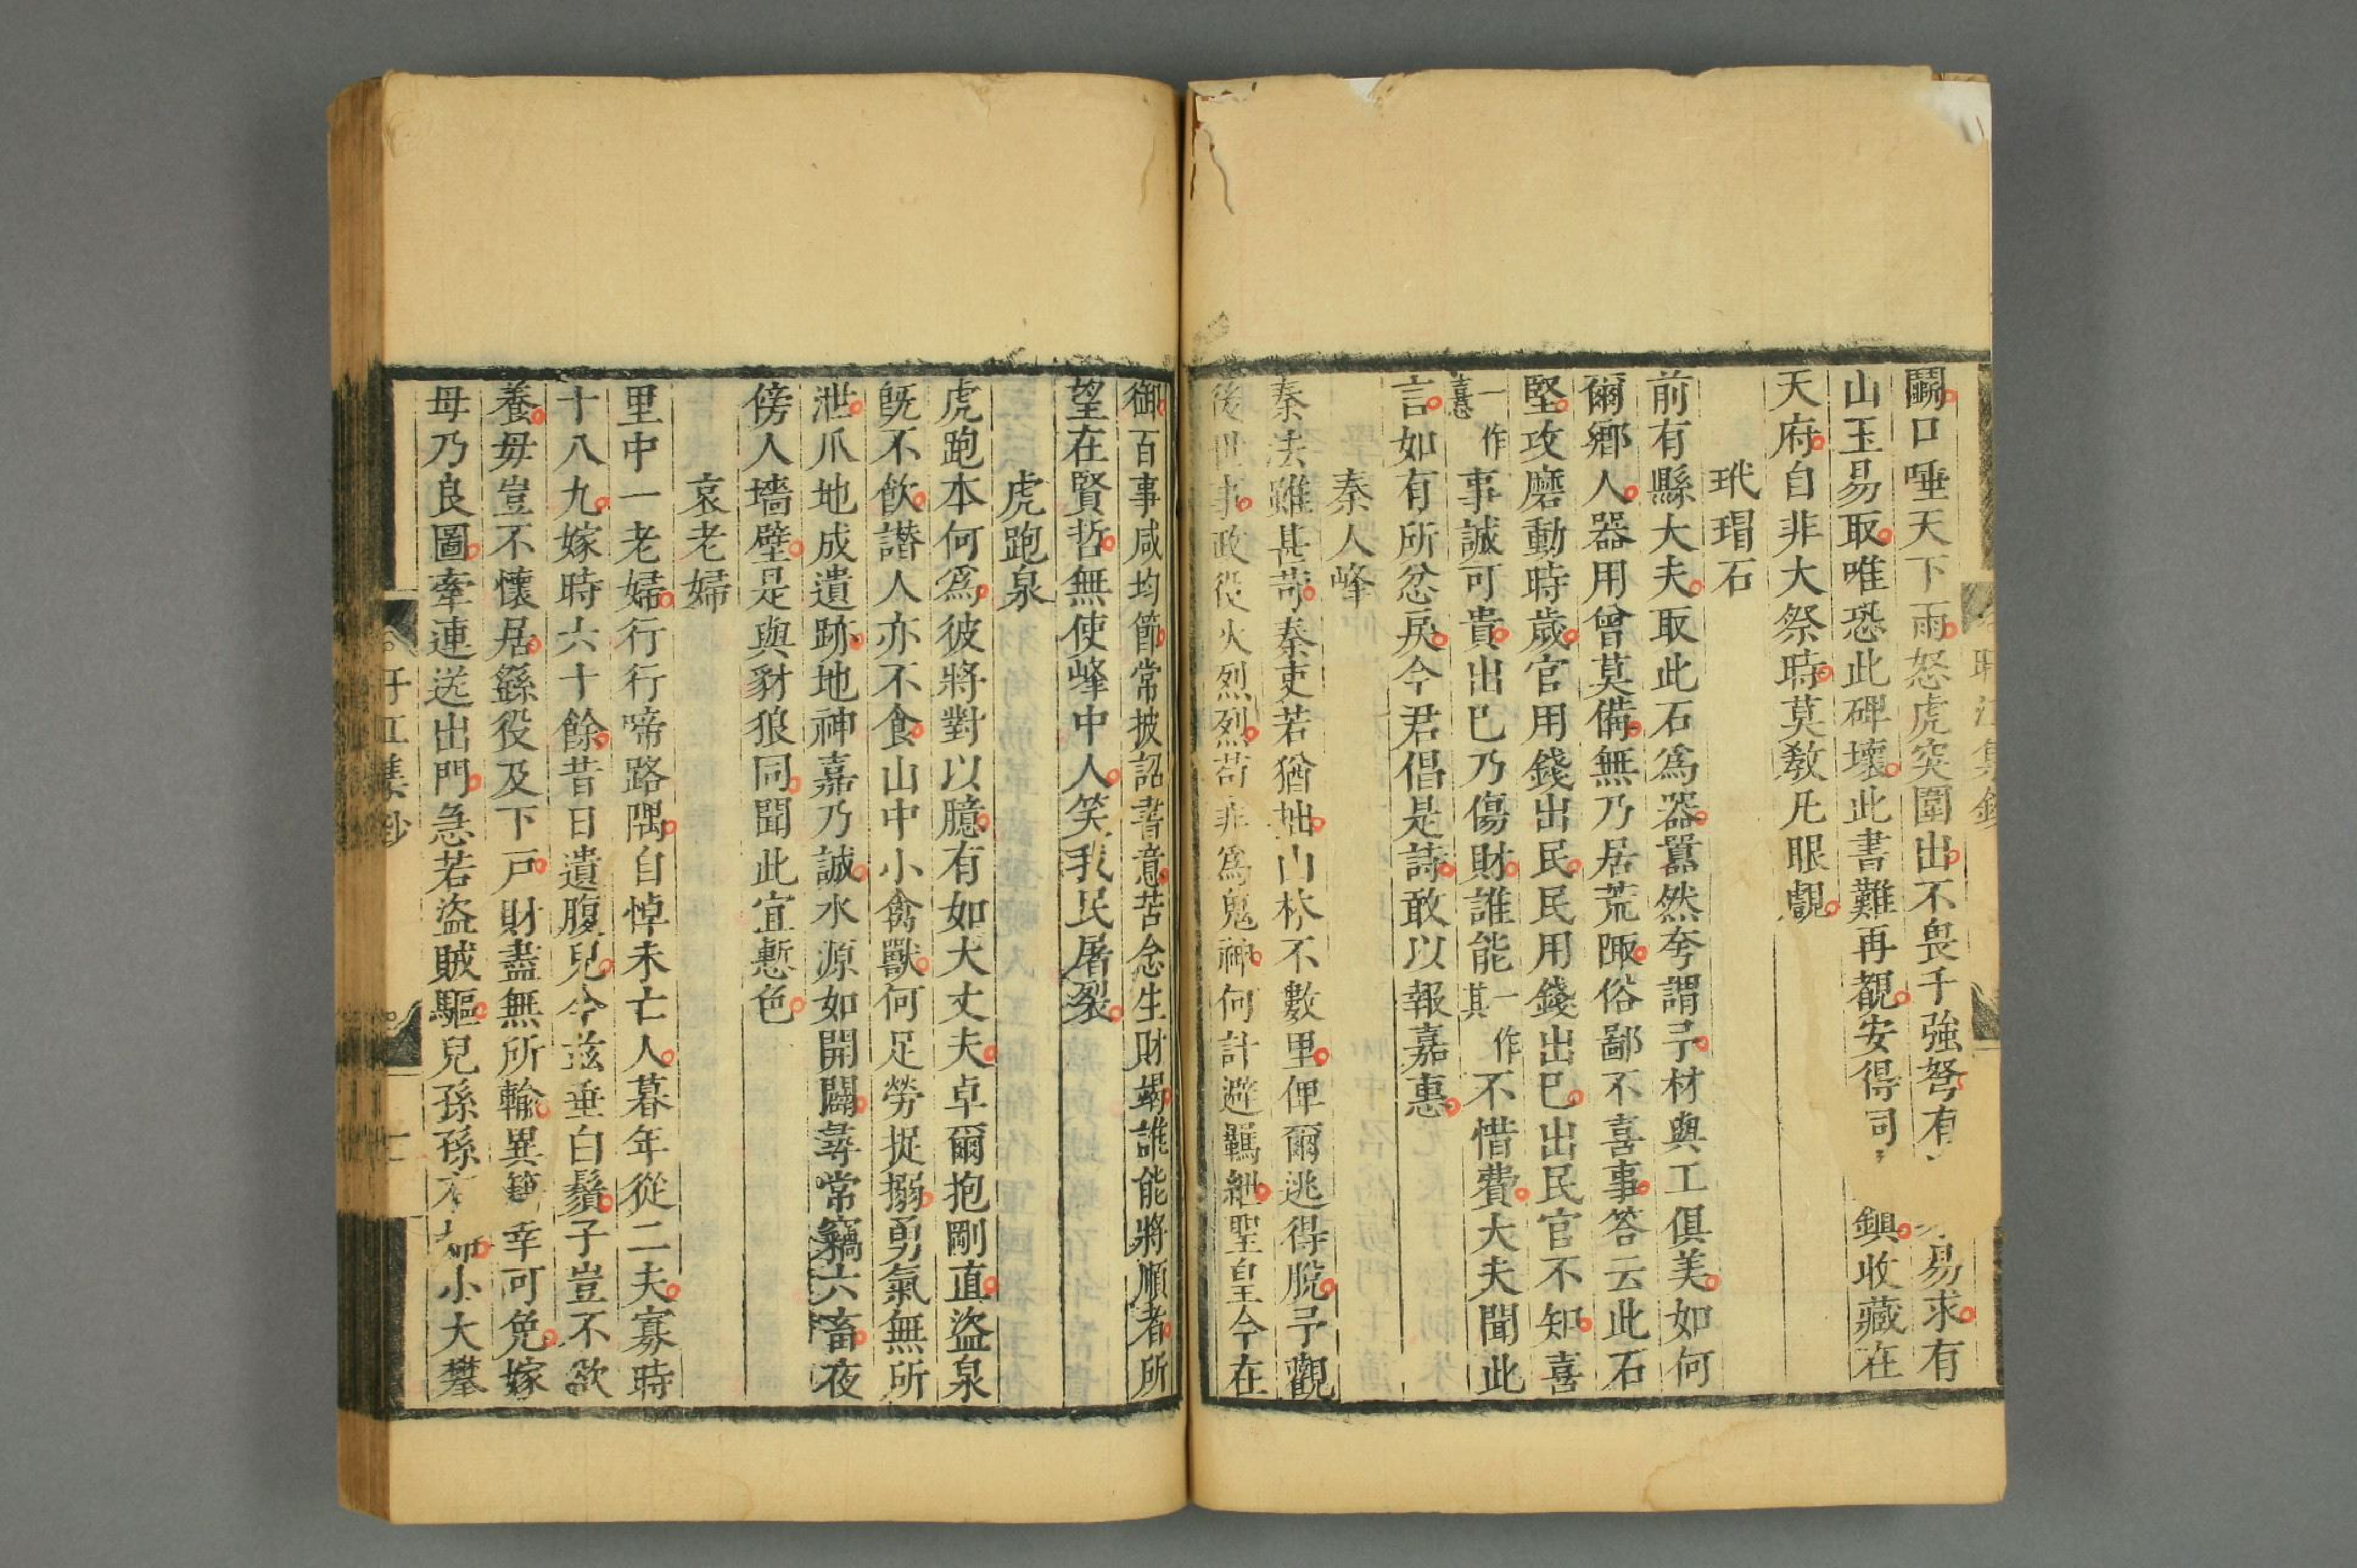 鬬口唾天下雨怒虎突圍出不畏千強弩有易求有
山玉易取唯恐此碑壞此書難再覩安得同鎭收藏在
天府自非大祭時莫敎凡眼覷
玳瑁石
前有縣大夫取此石爲器囂然夸謂予材與工俱美如何
爾鄉人器用曾莫備無乃居荒陬俗鄙不喜事答云此石
堅攻磨動時歲官用錢出民民用錢出巳出民官不知喜
一作憙事誠可貴出巳乃傷財誰能一作其不惜費大夫聞此
言如有所忿戾今君倡是詩敢以報嘉惠
秦人峰
秦法雖甚苛秦吏若猶拙山林不數里俾爾逃得脫予觀
後世事政役火烈烈苟非爲鬼神何計避羈紲聖皇今在
御百事咸均節常披詔書意苦念生財竭誰能將順者所
望在賢哲無使峰中人笑我民屠裂
虎跑泉
虎跑本何爲彼將對以臆有如大丈夫卓爾抱剛直盜泉
旣不飮譖人亦不食山中小禽獸何足勞捉搦勇氣無所
泄爪地成遺跡地神嘉乃誠水源如開闢尋常竊六畜夜
傍人墻壁是與豺狼同聞此宜慙色
哀老婦
里中一老婦行行啼路隅自悼未亡人暮年從二夫寡時
十八九嫁時六十餘昔日遺腹兒今茲垂白鬚子豈不欲
養母豈不懷居繇役及下戸財盡無所輸異籍幸可免嫁
母乃良圖牽連送出門急若盜賊驅兒孫孫小大攀
盱江集鈔
盱江集鈔